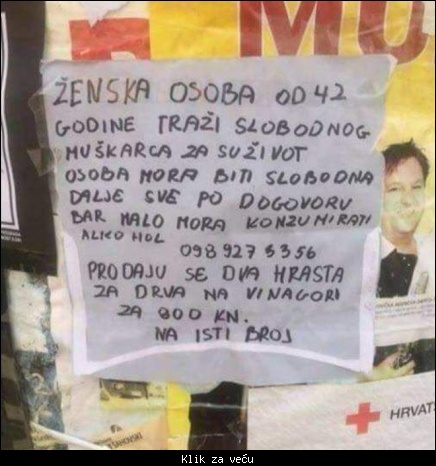 MU
ŽENSKA OSOBA OD 42
GODINE TRAŽI SLOBODNOG
MUŠKARCA ZA SUŽIVOT
OSOBA MORA BITI SLOBODNA
DALJE SVE PO DOGOVORU
BAR MALO MORA KONZUMIRATI
ALKO HOL
098 927 5356
PRODAJU SE DVA HRASTA
ZA DRVA NA VINAGORI
ZA 800 KN.
NA ISTI BROJ
HRVAT
Klik za veču